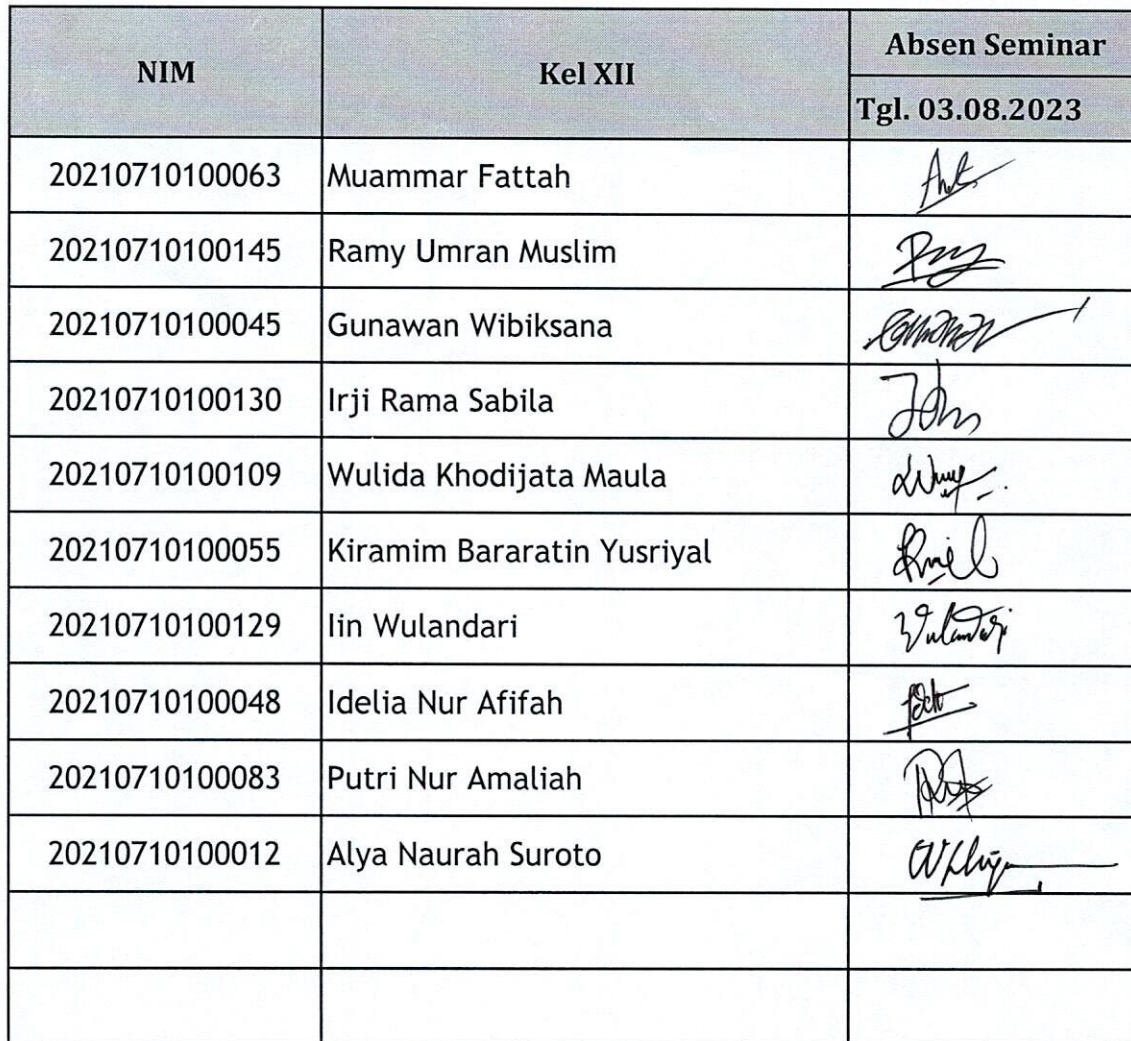 NIM Kel XII Absen Seminar
Tgl. 03.08.2023
20210710100063 Muammar Fattah
20210710100145 Ramy Umran Muslim
20210710100045 Gunawan Wibiksana
20210710100130 Irji Rama Sabila
20210710100109 Wulida Khodijata Maula
20210710100055 Kiramim Bararatin Yusriyal
20210710100129 Iin Wulandari Wulandari
20210710100048 Idelia Nur Afifah
20210710100083 Putri Nur Amaliah
20210710100012 Alya Naurah Suroto